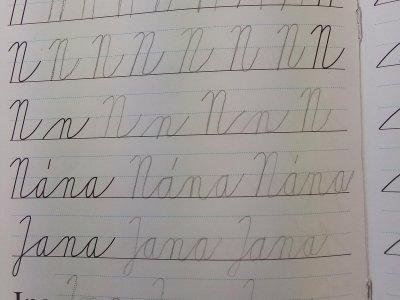 N N N N N N N N
N n N n N n N
Nána Nána Nána
Jana Jana Jana